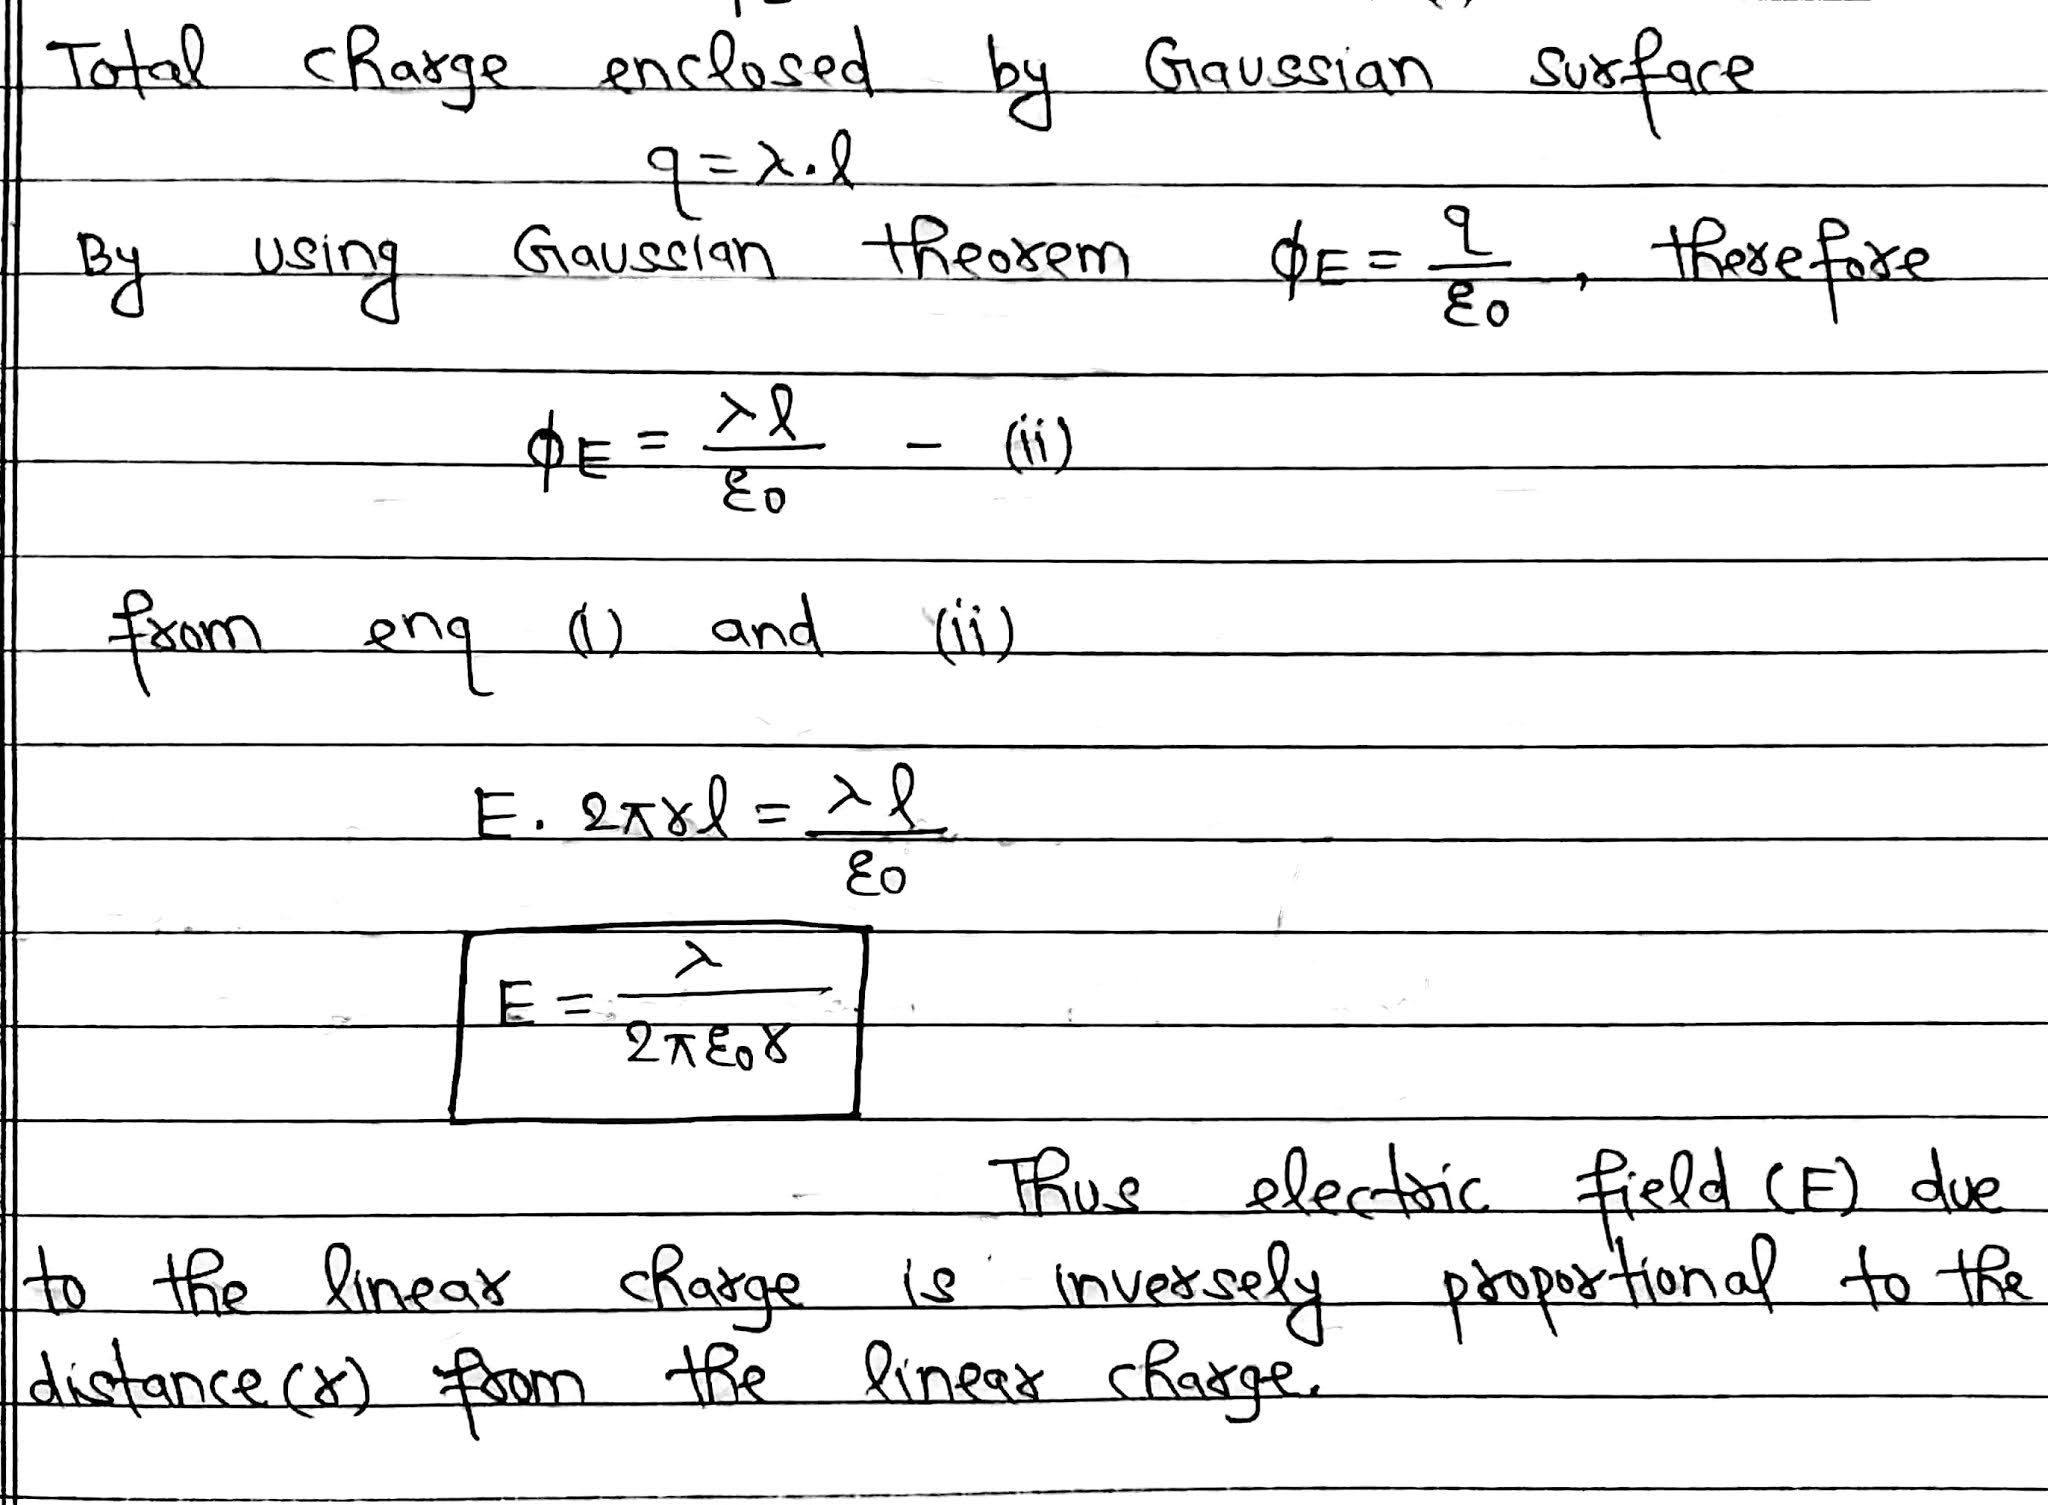 Total charge enclosed by Gaussian surface
q = λ.l
By using Gaussian theorem ϕE = q/ε0, therefore
ϕE = λl/ε0 - (ii)
from enq (i) and (ii)
E. 2πrl = λl/ε0
E = λ/2πε0r
Thus electric field (E) due
to the linear charge is inversely proportional to the
distance (r) from the linear charge.